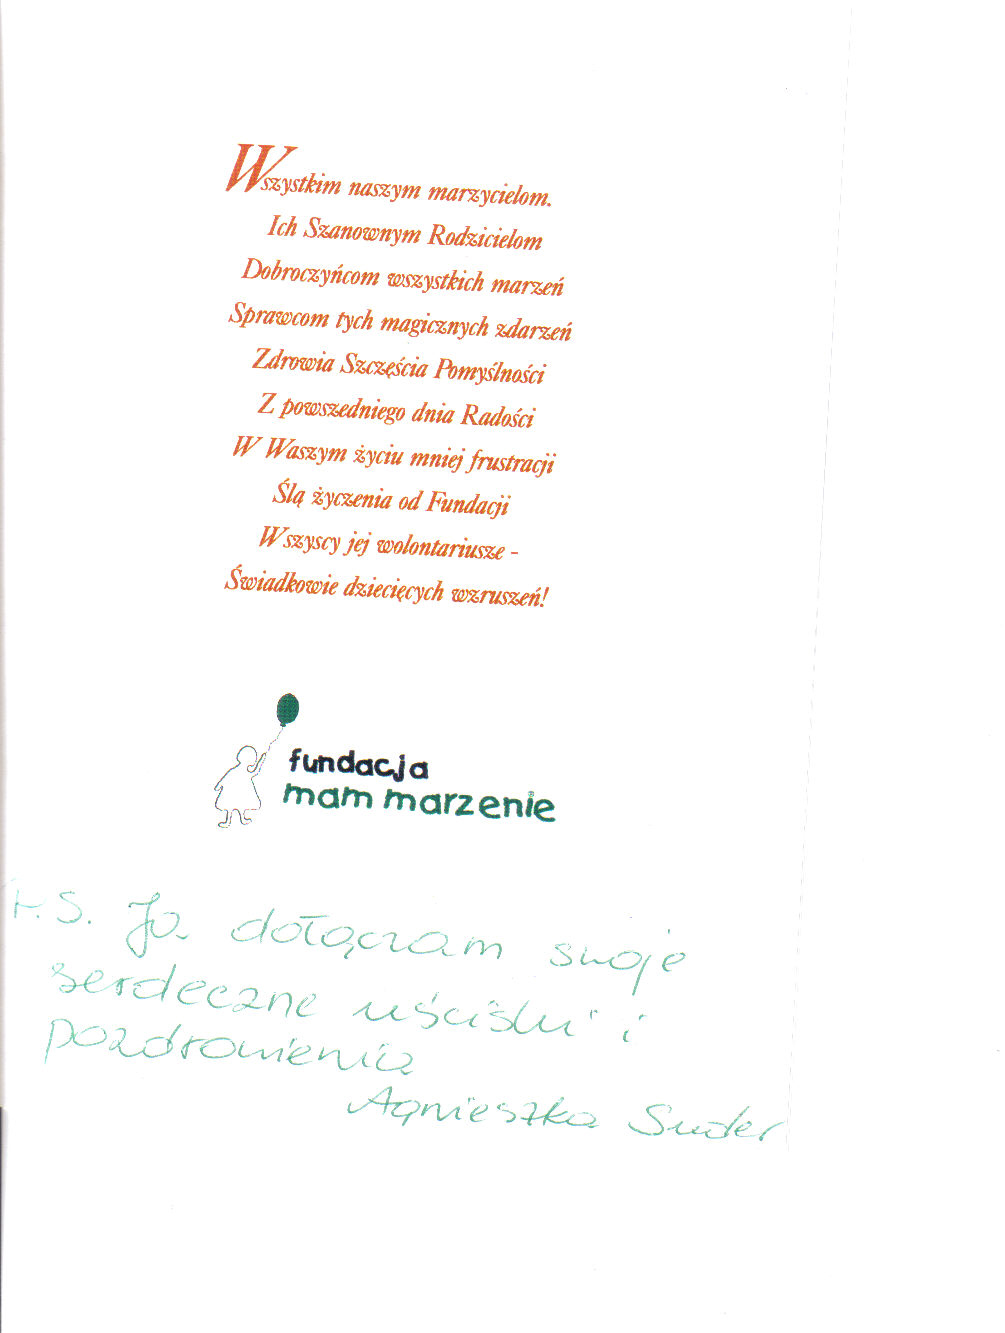 Wszystkim naszym marzycielom.
Ich Szanownym Rodzicielom
Dobroczyńcom wszystkich marzeń
Sprawcom tych magicznych zdarzeń
Zdrowia Szczęścia Pomyślności
Z powszedniego dnia Radości
W Waszym życiu mniej frustracji
Ślą życzenia od Fundacji
Wszyscy jej wolontariusze -
Świadkowie dziecięcych wzruszeń!
fundacja
mam marzenie
P.S. Ja dołączam swoje
serdeczne uściski i
pozdrowienia
Agnieszka Suder